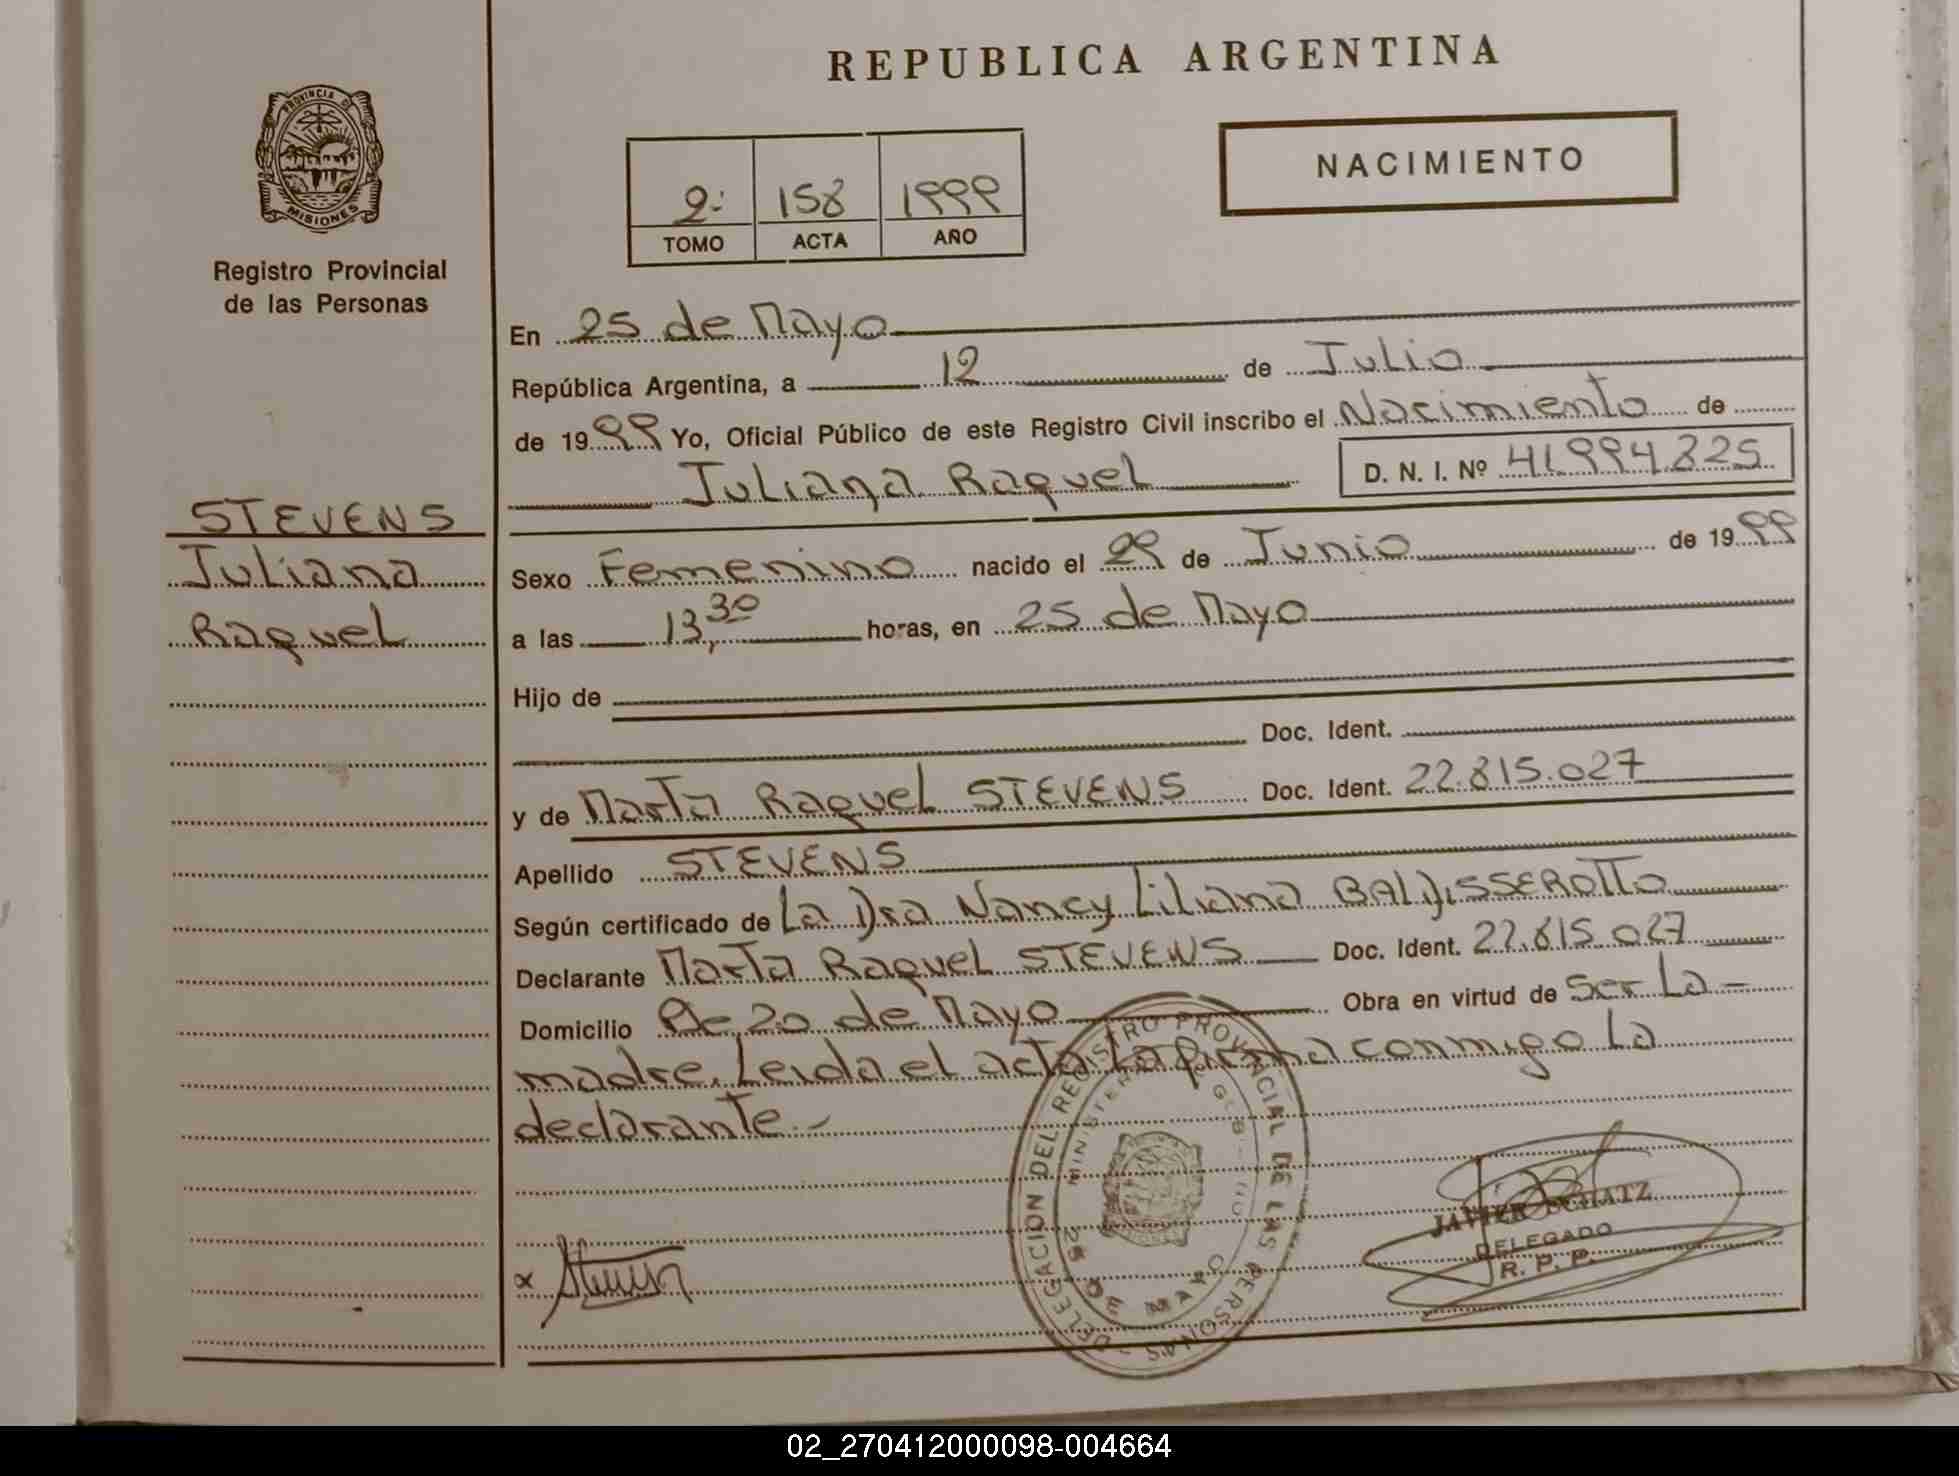 REPUBLICA ARGENTINA
PROVINCIA DE
MISIONES
Registro Provincial
de las Personas
NACIMIENTO
2º 158 1999
TOMO ACTA AÑO
En 25 de Mayo
República Argentina, a 12 de Julio
de 1999 Yo, Oficial Público de este Registro Civil inscribo el Nacimiento de
Juliana Raquel D. N. I. Nº 41994825
STEVENS
Juliana
Raquel
Sexo Femenino nacido el 29 de Junio de 1999
a las 13,30 horas, en 25 de Mayo
Hijo de
Doc. Ident.
y de Marta Raquel STEVENS Doc. Ident. 22.815.027
Apellido STEVENS
Según certificado de La Dra Nancy Liliana BALDISSEROTTO
Declarante Marta Raquel STEVENS Doc. Ident. 22.815.027
Domicilio Pje 20 de Mayo Obra en virtud de Ser La -
madre. Leida el acta La firma conmigo La
declarante.-
DELEGACION DEL REGISTRO PROVINCIAL DE LAS PERSONAS -
MINISTERIO DE GOBIERNO
25 DE MAYO
x Stevens
JAVIER SCHATZ
DELEGADO
R. P. P.
02_270412000098-004664